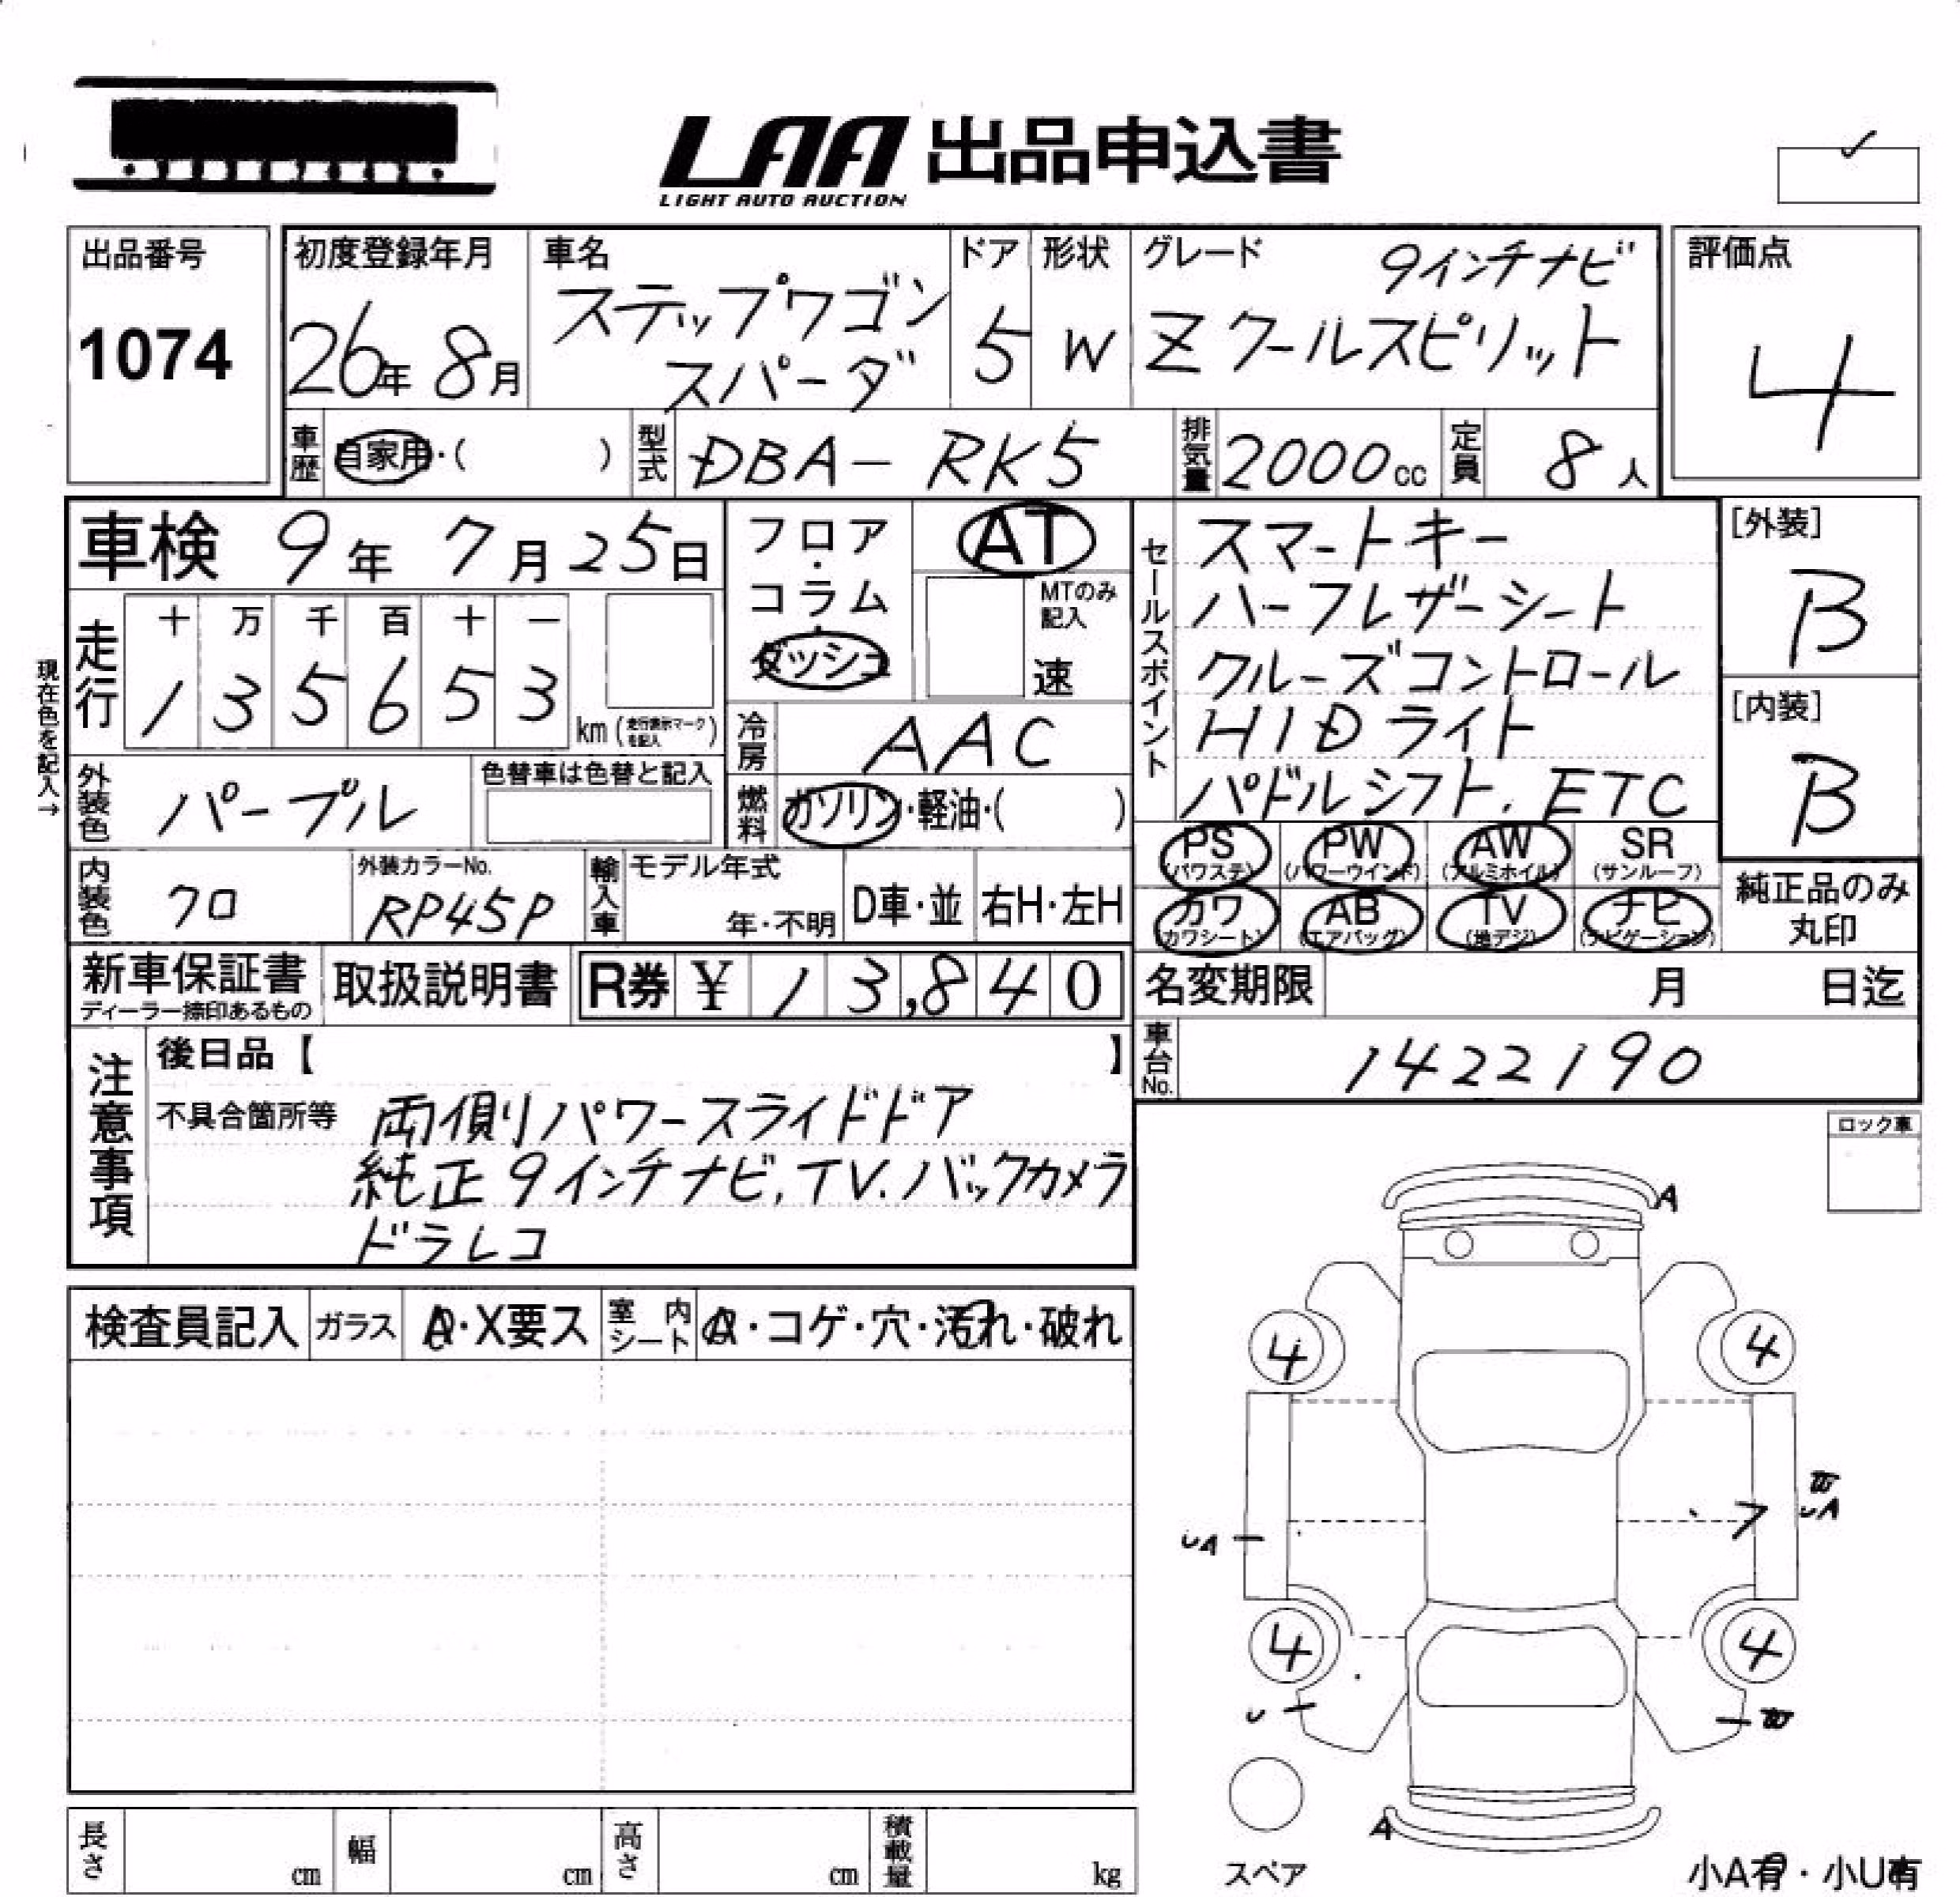 LAA 出品申込書
LIGHT AUTO AUCTION
出品番号
1074
初度登録年月
26年 8月
車名
ステップワゴン
スパーダ
ドア
5
形状
W
グレード
9インチナビ
Zクールスピリット
評価点
4
車歴 自家用・( )
型式 DBA- RK5
排気量 2000cc
定員 8人
車検 9年 7月25日
フロア・
コラム・
ダッシュ
AT
MTのみ
記入
速
セールスポイント
スマートキー
ハーフレザーシート
クルーズコントロール
HIDライト
パドルシフト. ETC
[外装]
B
[内装]
B
現在色を記入→
走行
十 万 千 百 十 一
1 3 5 6 5 3
km (走行表示マークを記入)
冷房 AAC
外装色 パープル
色替車は色替と記入
燃料 ガソリン・軽油・( )
PS (パワステ)
PW (パワーウインド)
AW (アルミホイル)
SR (サンルーフ)
カワ (カワシート)
AB (エアバッグ)
TV (地デジ)
ナビ (ナビゲーション)
純正品のみ
丸印
内装色 クロ
外装カラーNo.
RP45P
輸入車
モデル年式
年・不明
D車・並
右H・左H
新車保証書
ディーラー捺印あるもの
取扱説明書
R券 ¥ 13,840
名変期限 月 日迄
車台No. 1422190
注意事項
後日品【 】
不具合箇所等 両側パワースライドドア
純正9インチナビ. TV. バックカメラ
ドラレコ
ロック車
検査員記入 ガラス A・X要ス 室内シート A・コゲ・穴・汚れ・破れ
A
4 4
W
UA
フ
UA
4 4
U
W
A
スペア
小A有・小U有
長さ cm
幅 cm
高さ cm
積載量 kg